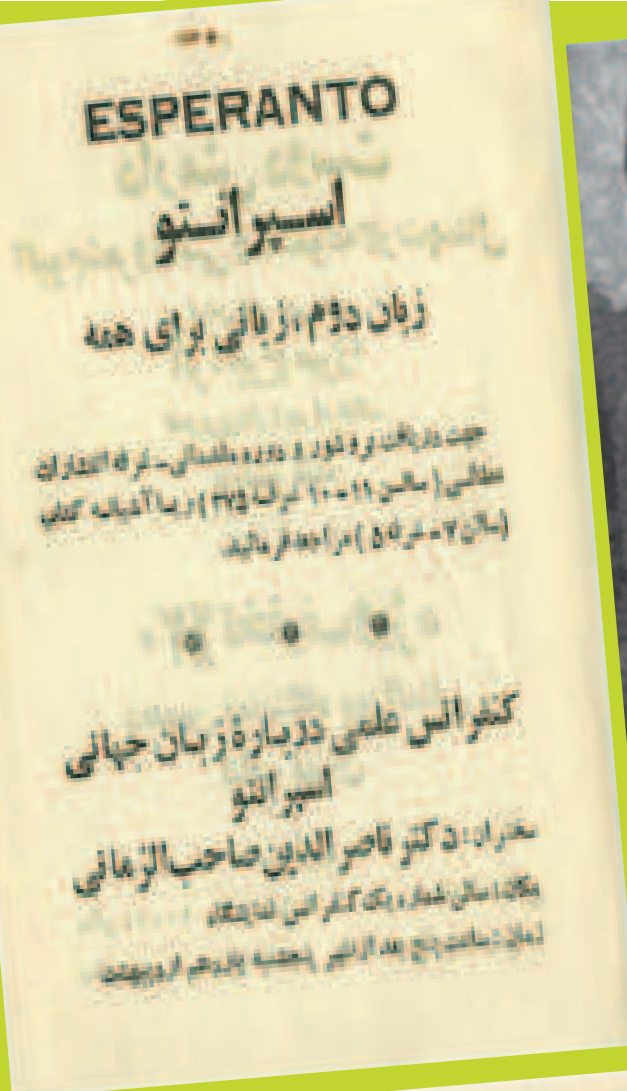 ESPERANTO
اسپرانتو
زبان دوّم، زبانی برای همه
جهت دریافت بروشور و دوره مقدماتی ـ غرفه انتشارات
عطائی (سالن ۱۱ ـ ۱۰ غرفه ۳۷۵) و یا آشیانه کتاب
(سالن ۷ ـ غرفه ۵) مراجعه فرمائید.
کنفرانس علمی دربارهٔ زبان جهانی
اسپرانتو
سخنران: دکتر ناصرالدین صاحب‌الزمانی
مکان: سالن شماره یک کنفرانس نمایشگاه
زمان: ساعت پنج بعد از ظهر پنجشنبه یازدهم اردیبهشت